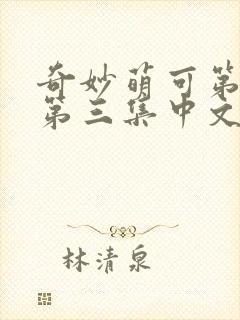 奇妙萌可第
第三集中文
林清泉